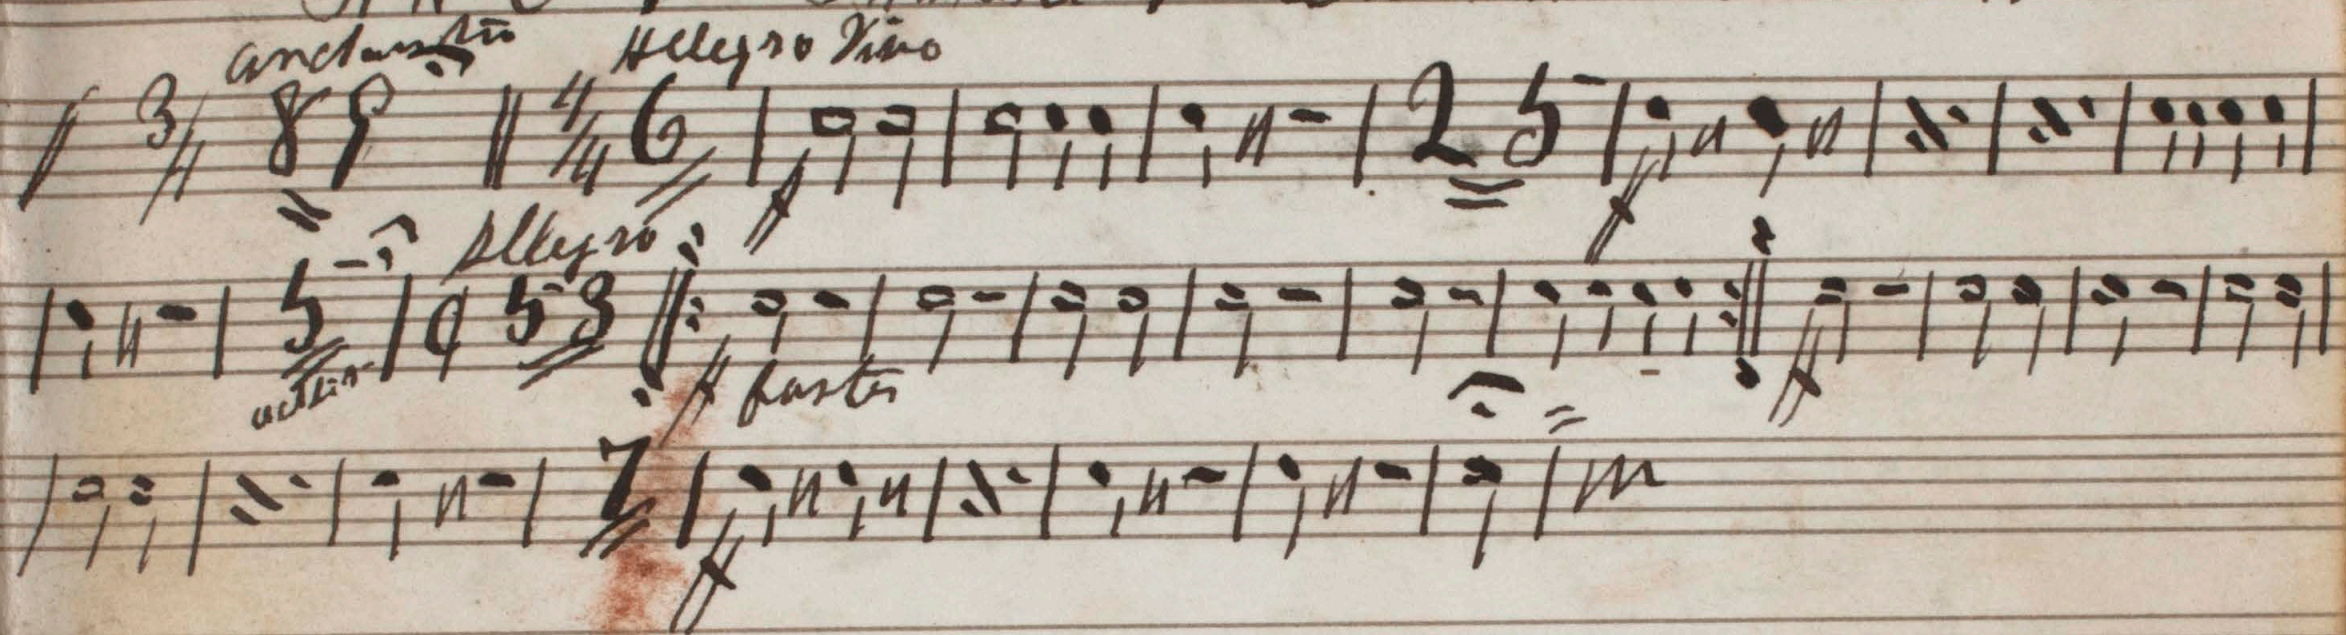 andantio Allegro Vivo
3/4 89 4/4 6 ff 25 ff
Allegro
5 ¢ 53 ff
faster ff
7 ff